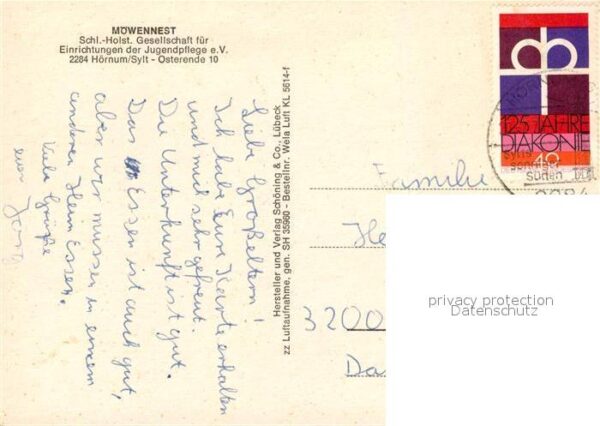 MÖWENNEST
Schl.-Holst. Gesellschaft für
Einrichtungen der Jugendpflege e.V.
2284 Hörnum/Sylt - Osterende 10
Liebe Großeltern!
Ich habe Eure Karte erhalten
und mich sehr gefreut.
Die Unterkunft ist gut.
Das Essen ist auch gut,
aber wir müssen in einem
anderen Heim Essen.
Viele Grüße
euer
Jörg
Hersteller und Verlag Schöning & Co., Lübeck
zz Luftaufnahme, gen. SH 35960 - Bestellnr. Wela Luft KL 5614-f
125 JAHRE
DIAKONIE
40
Sylts
Süden
2284
Familie
He
3200
Da
privacy protection
Datenschutz